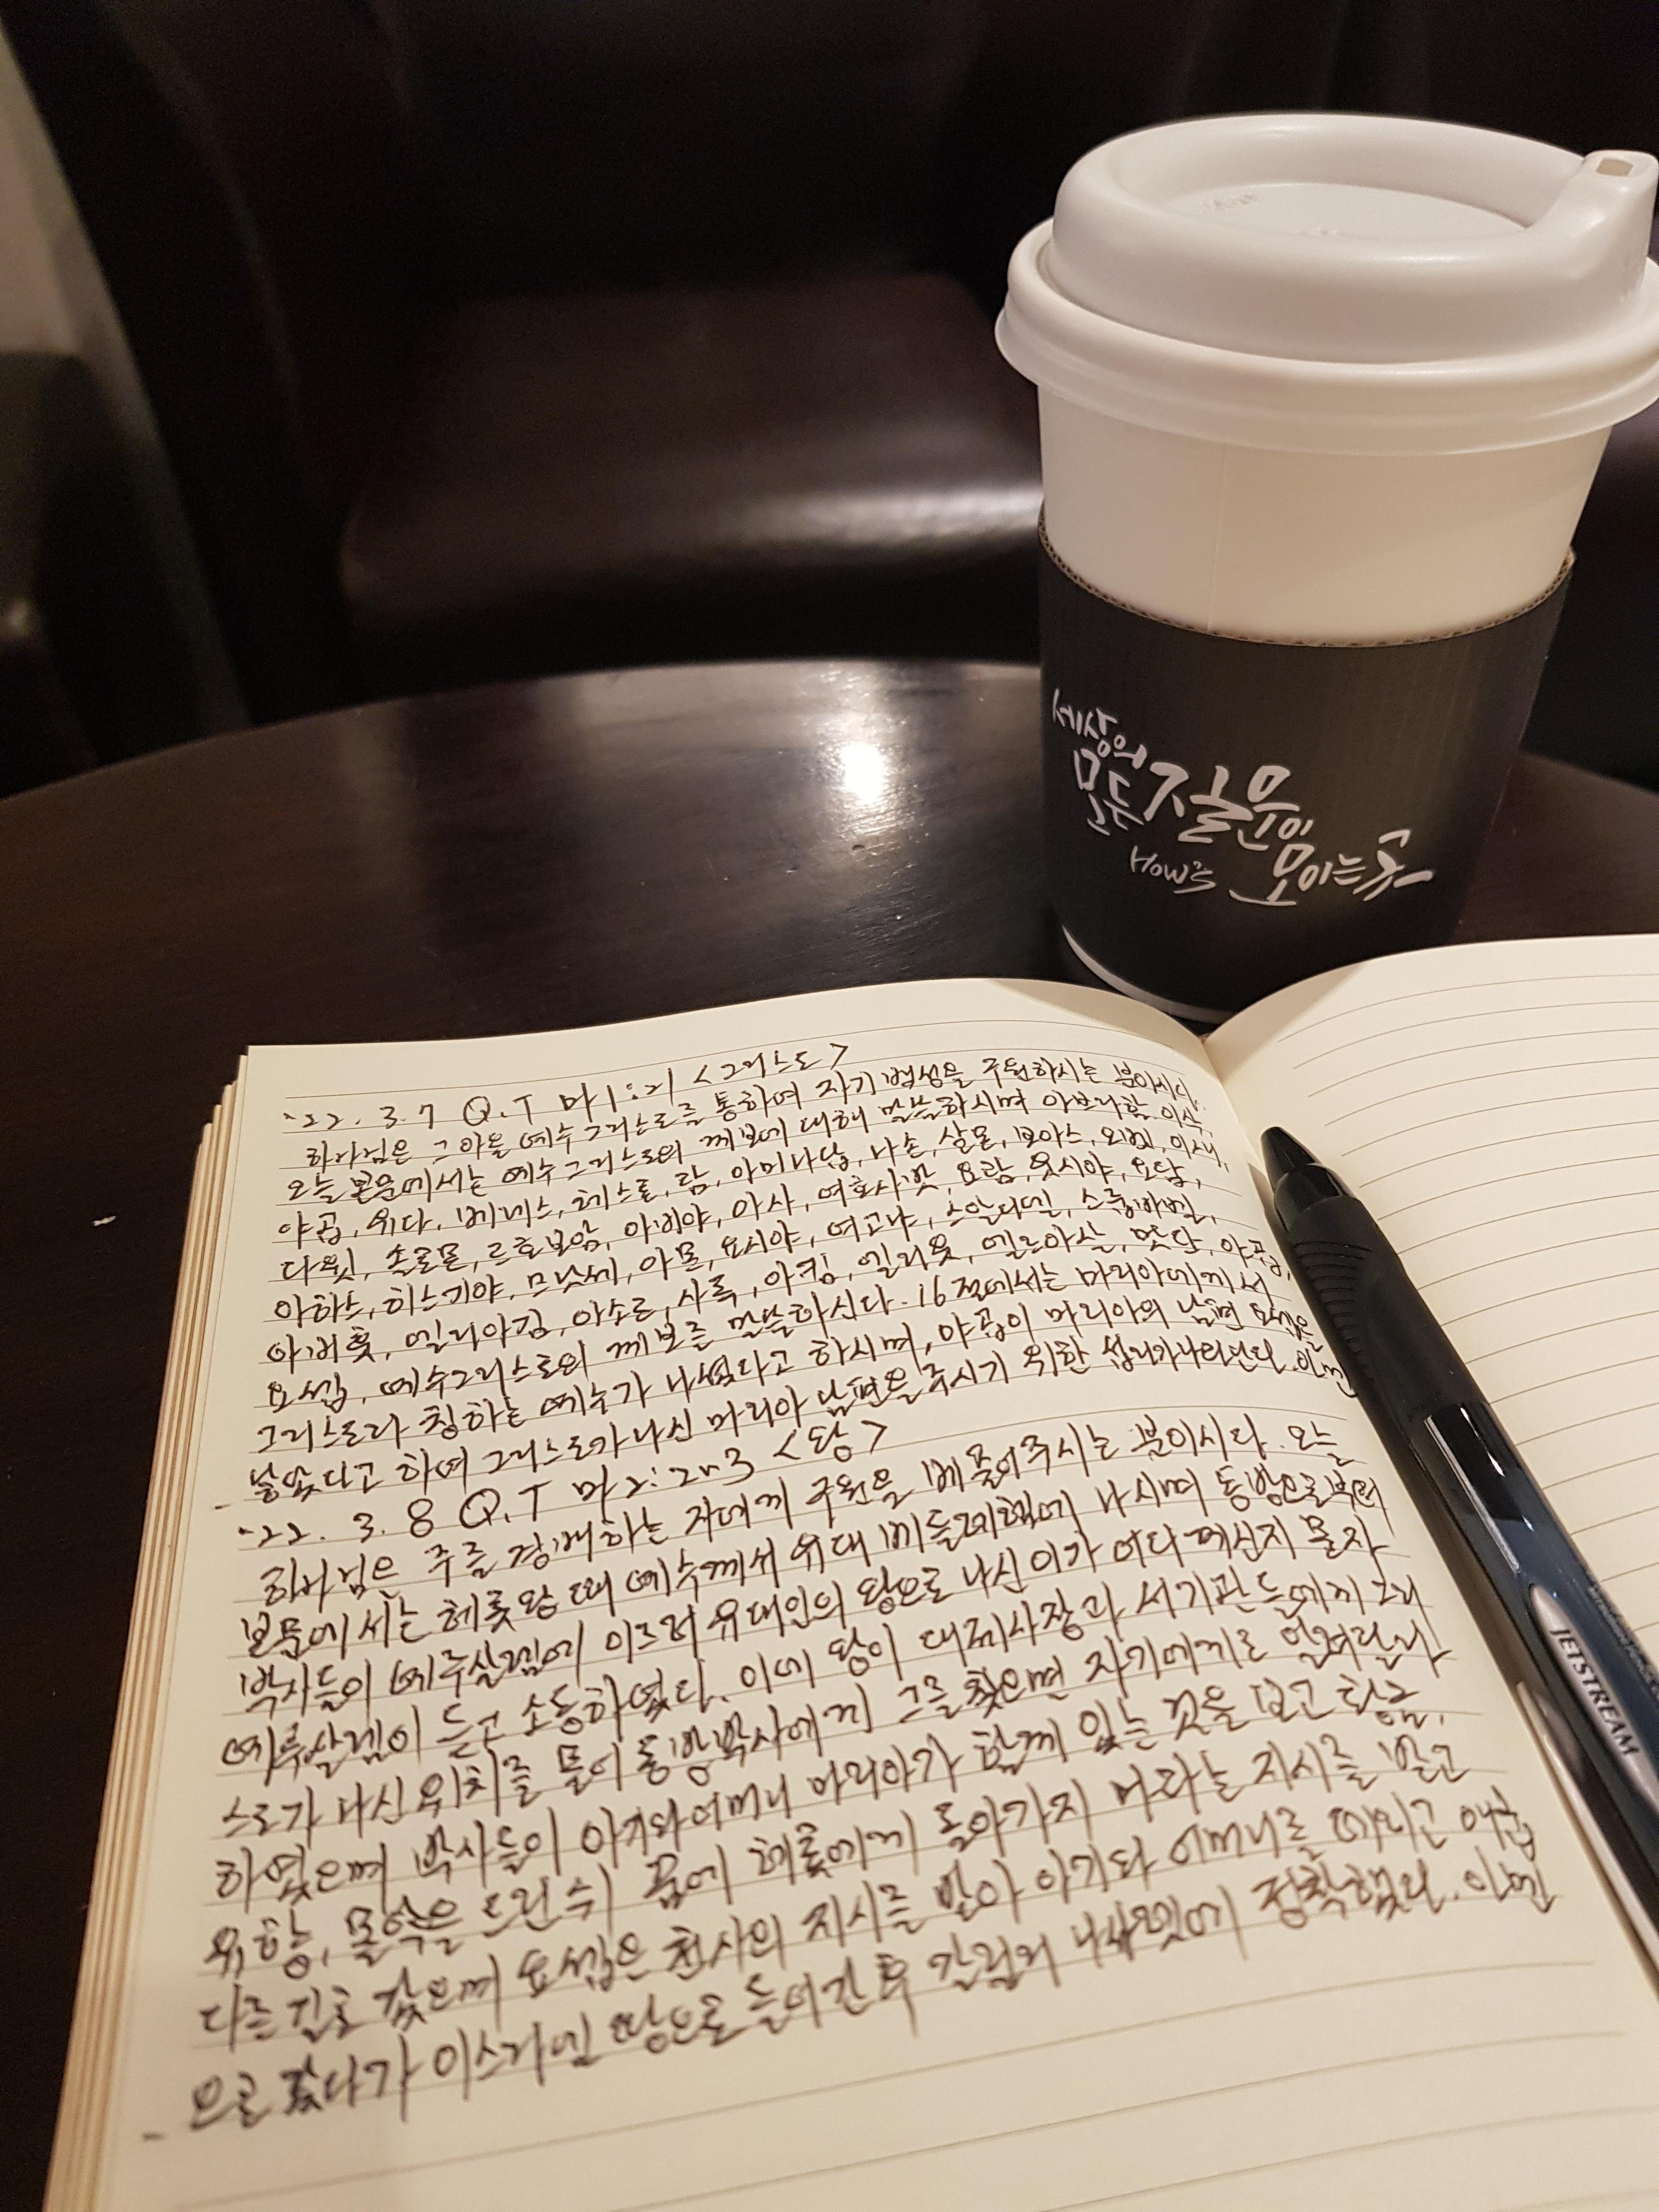 세상의
모든 질문이
모이는 곳
HOW's
'22. 3. 7 Q.T 마1:21 <그리스도>
하나님은 그 아들 예수그리스도를 통하여 자기 백성을 구원하시는 분이시다.
오늘 본문에서는 예수그리스도의 께보에 대해 말씀하시며 아브라함, 이삭,
야곱, 유다, 베레스, 헤스론, 람, 아미나답, 나손, 살몬, 보아스, 오벳, 이새,
다윗, 솔로몬, 르호보암, 아비야, 아사, 여호사밧, 요람, 웃시야, 요담,
아하스, 히스기야, 므낫세, 아몬, 요시야, 여고냐, 스알디엘, 스룹바벨,
아비훗, 엘리아김, 아소르, 사독, 아킴, 엘리웃, 엘르아살, 맛단, 야곱,
요셉, 예수그리스도의 께보를 말씀하신다. 16절에서는 마리아에게서
그리스도라 칭하는 예수가 나셨다고 하시며, 야곱이 마리아의 남편 요셉을
낳았다고 하여 그리스도가 나신 마리아 남편을 주시기 위한 섭리가 아멘
'22. 3. 8 Q.T 마2:2~3 <왕>
하나님은 주를 경배하는 자에게 구원을 베풀어주시는 분이시다. 오늘
본문에서는 헤롯왕 때 예수께서 유대 베들레헴에 나시며 동방으로부터
박사들이 예루살렘에 이르러 유대인의 왕으로 나신 이가 어디 계신지 묻자
예루살렘이 듣고 소동하였다. 이에 왕이 대제사장과 서기관들에게 그리
스도가 나신 위치를 물어 동방박사에게 그를 찾으면 자기에게로 알려달라
하였으며 박사들이 아기와 어머니 마리아가 함께 있는 것을 보고 황금,
유향, 몰약을 드린 뒤 꿈에 헤롯에게 돌아가지 마라는 지시를 받고
다른 길로 갔으며 요셉은 천사의 지시를 받아 아기와 어머니를 데리고 애굽
으로 갔다가 이스라엘 땅으로 들어간 후 갈릴리 나사렛에 정착했다. 아멘
JETSTREAM